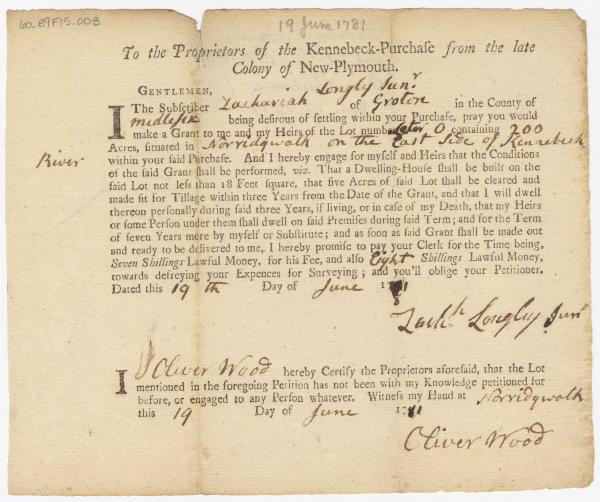 60_89F15.008
19 June 1781
To the Proprietors of the Kennebeck-Purchaſe from the late
Colony of New-Plymouth.
GENTLEMEN,
I The Subſcriber Zachariah Longly Junr of Groton in the County of
midleſix being deſirous of ſettling within your Purchaſe, pray you would
make a Grant to me and my Heirs of the Lot number Leter O containing 200
Acres, ſituated in Norridgwalk on the East Side of Kennebeck
River within your ſaid Purchaſe. And I hereby engage for myſelf and Heirs that the Conditions
of the ſaid Grant ſhall be performed, viz. That a Dwelling-Houſe ſhall be built on the
ſaid Lot not leſs than 18 Feet ſquare, that five Acres of ſaid Lot ſhall be cleared and
made fit for Tillage within three Years from the Date of the Grant, and that I will dwell
thereon perſonally during ſaid three Years, if living, or in caſe of my Death, that my Heirs
or ſome Perſon under them ſhall dwell on ſaid Premiſes during ſaid Term; and for the Term
of ſeven Years more by myſelf or Subſtitute; and as ſoon as ſaid Grant ſhall be made out
and ready to be delivered to me, I hereby promiſe to pay your Clerk for the Time being,
Seven Shillings Lawful Money, for his Fee, and alſo Eight Shillings Lawful Money,
towards defreying your Expences for Surveying; and you'll oblige your Petitioner.
Dated this 19th Day of June 1781
Zachh Longly Junr
I Oliver Wood hereby Certify the Proprietors aforeſaid, that the Lot
mentioned in the foregoing Petition has not been with my Knowledge petitioned for
before, or engaged to any Perſon whatever. Witneſs my Hand at Norridgwalk
this 19 Day of June 1781
Oliver Wood